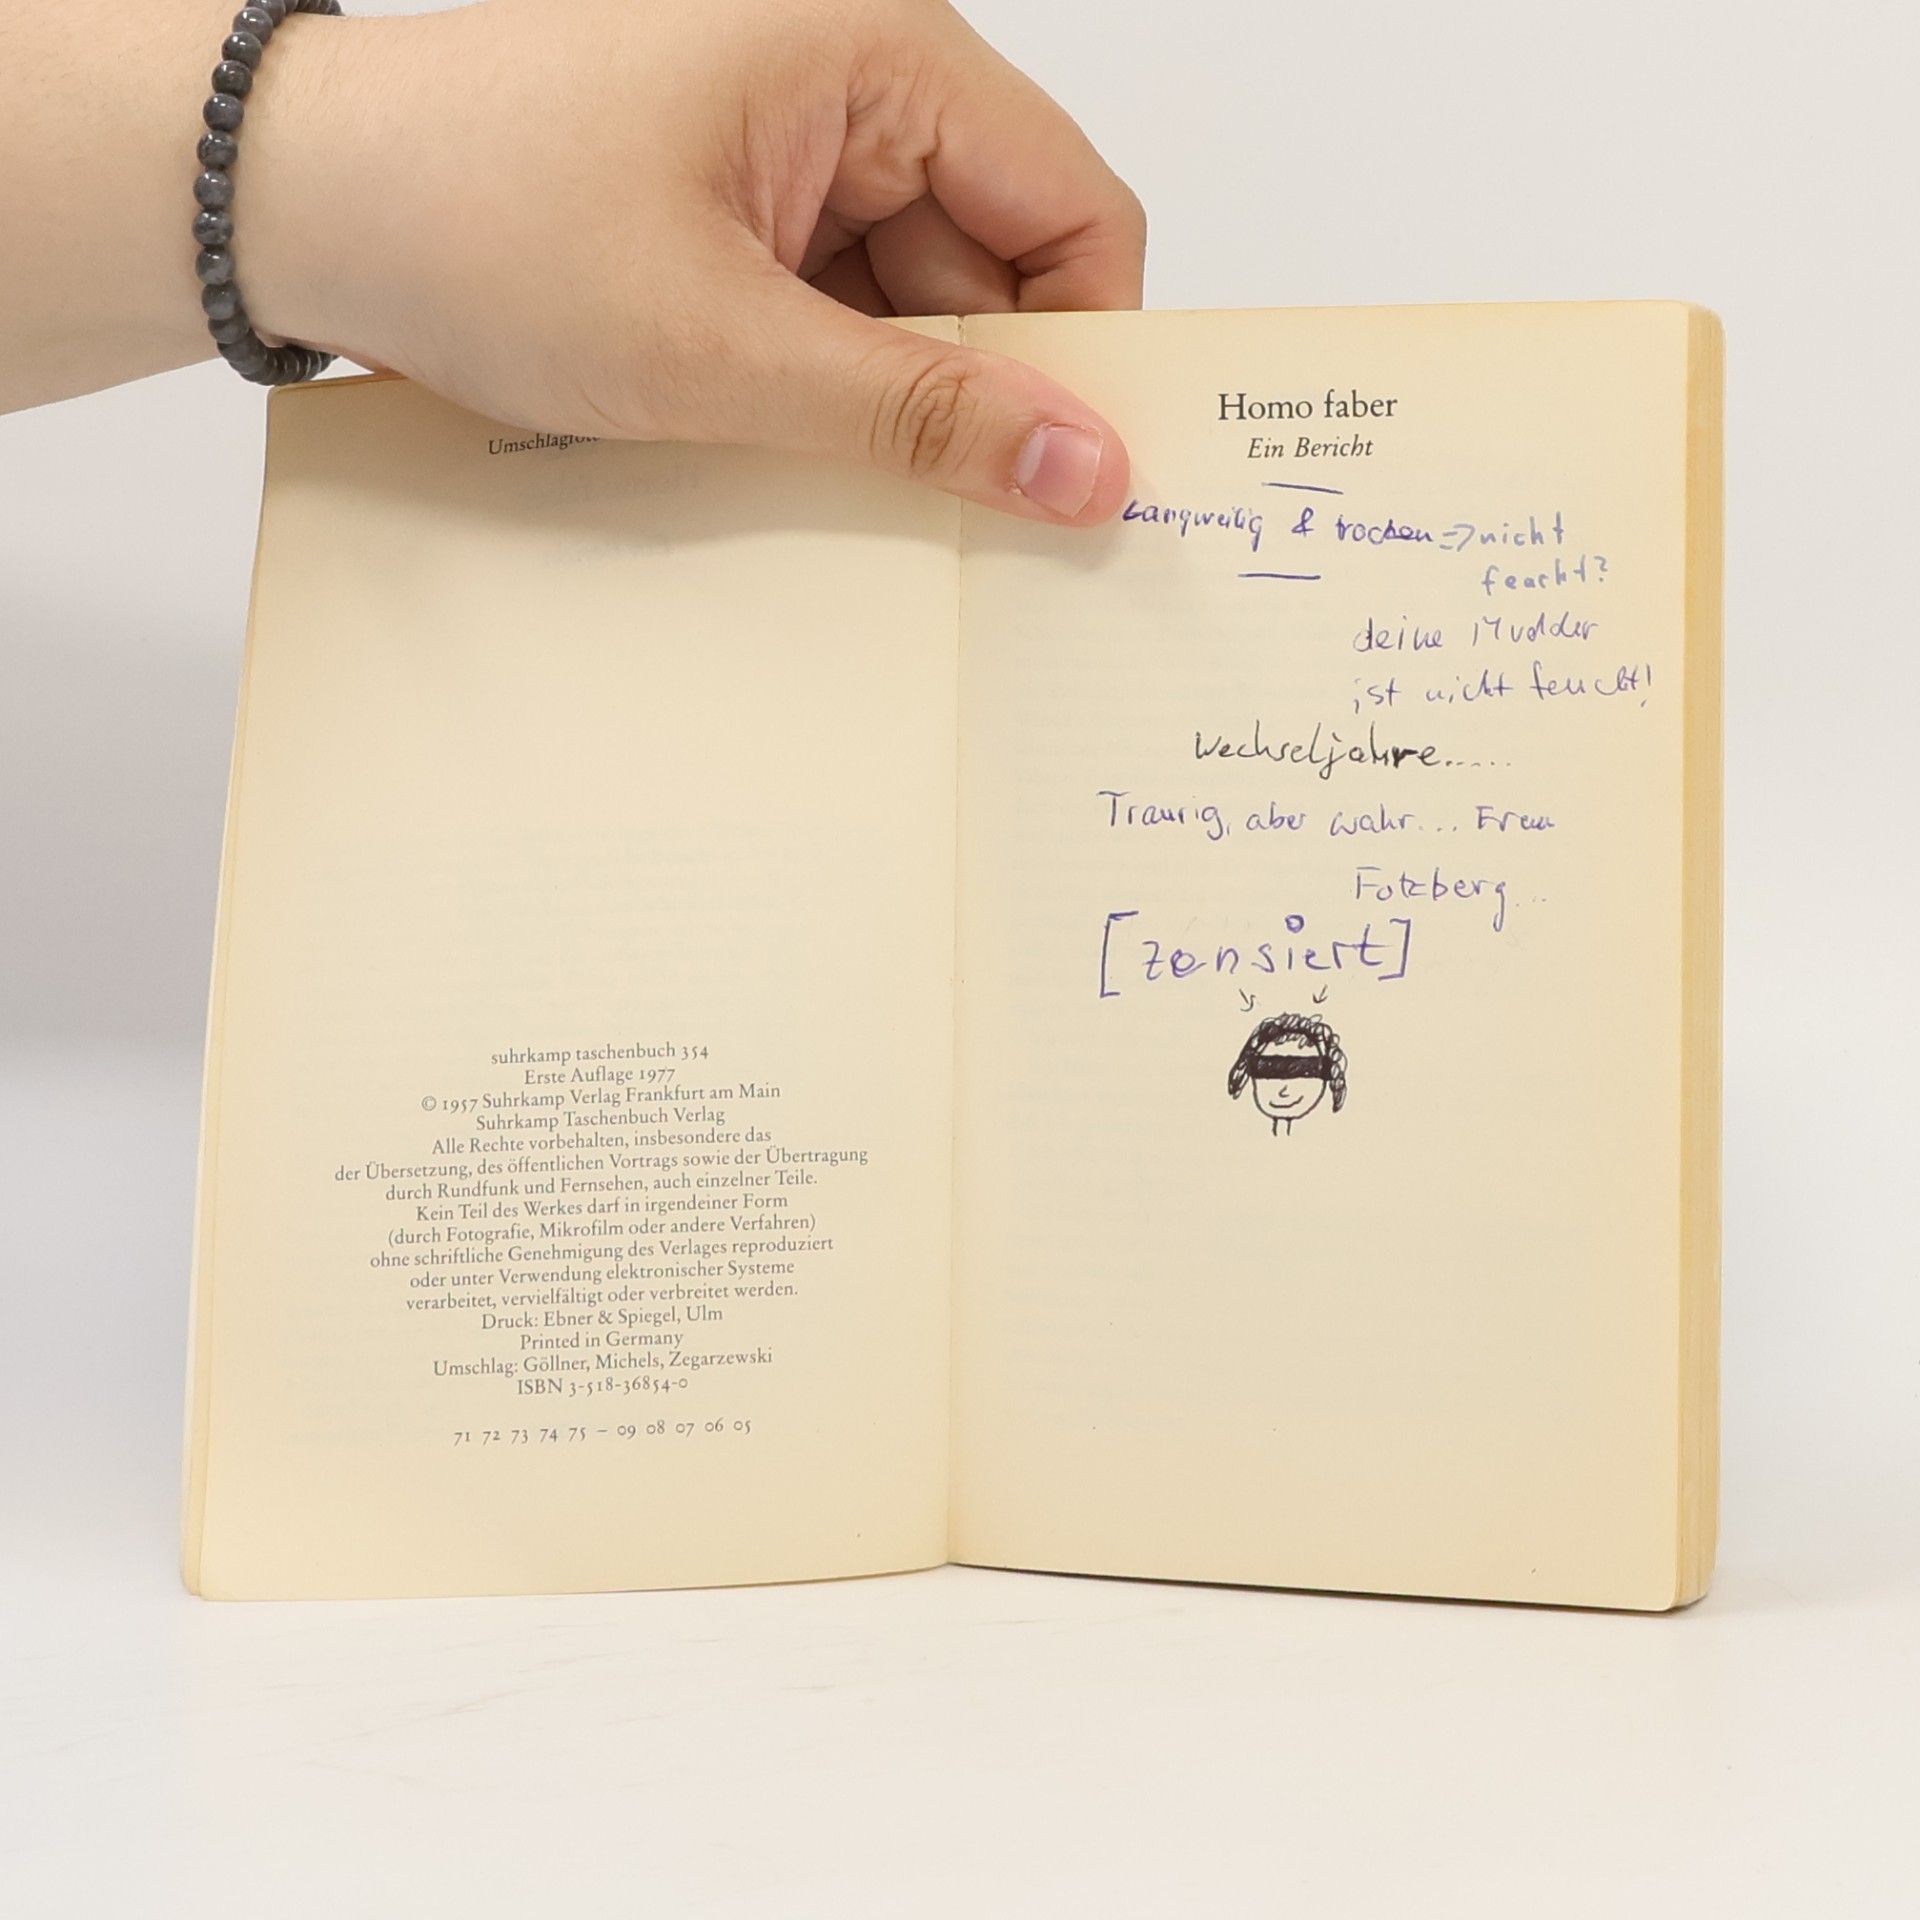 Umschlagfoto
suhrkamp taschenbuch 354
Erste Auflage 1977
© 1957 Suhrkamp Verlag Frankfurt am Main
Suhrkamp Taschenbuch Verlag
Alle Rechte vorbehalten, insbesondere das
der Übersetzung, des öffentlichen Vortrags sowie der Übertragung
durch Rundfunk und Fernsehen, auch einzelner Teile.
Kein Teil des Werkes darf in irgendeiner Form
(durch Fotografie, Mikrofilm oder andere Verfahren)
ohne schriftliche Genehmigung des Verlages reproduziert
oder unter Verwendung elektronischer Systeme
verarbeitet, vervielfältigt oder verbreitet werden.
Druck: Ebner & Spiegel, Ulm
Printed in Germany
Umschlag: Göllner, Michels, Zegarzewski
ISBN 3-518-36854-0
71 72 73 74 75 – 09 08 07 06 05
Homo faber
Ein Bericht
Langweilig & trocken => nicht
feucht?
deine Mudder
ist nicht feucht!
Wechseljahre.....
Traurig, aber wahr... Frau
Fotzberg...
[zensiert]